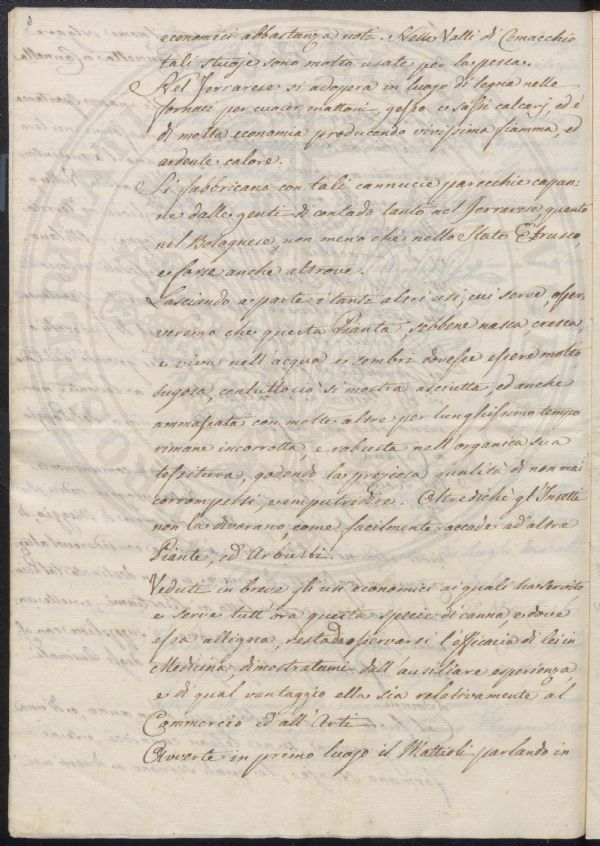 economici abbastanza noti. Nelle Valli di Comacchio
tali stuoje sono molto usate per la pesca.
Nel Ferrarese si adopera in luogo di legna nelle
fornaci per cuocer mattoni, gesso e sassi calcarj, ed è
di molta economia producendo vivissima fiamma, ed
ardente calore.
Si fabbricano con tali cannucce parecchie capan-
ne dalle genti di contado tanto nel Ferrarese, quanto
nel Bolognese, non meno che nello Stato Etrusco,
e forse anche altrove.
Lasciando a parte i tanti altri usi, cui serve, osser-
veremo che questa Pianta, sebbene nasca, cresca,
e viva nell'acqua e sembri dovesse essere molto
sugosa, contuttociò si mostra asciutta, ed anche
ammassata con molte altre per lunghissimo tempo
rimane incorrotta, e robusta nell'organica sua
tessitura, godendo la preziosa qualità di non mai
corrompersi, e emputridire. Oltredichè gl'Insetti
non la divorano, come facilmente accade ad altre
Piante, ed Arbusti.
Veduti in breve gli usi economici ai quali ha servito
e serve tutt'ora questa specie di canna e dove
essa alligna, resta da osservarsi l'efficacia di lei in
Medicina, dimostratami dall'ausiliare esperienza,
e di qual vantaggio ella sia relativamente al
Commercio ed all'Arti.
Avverte in primo luogo il Mattioli parlando in